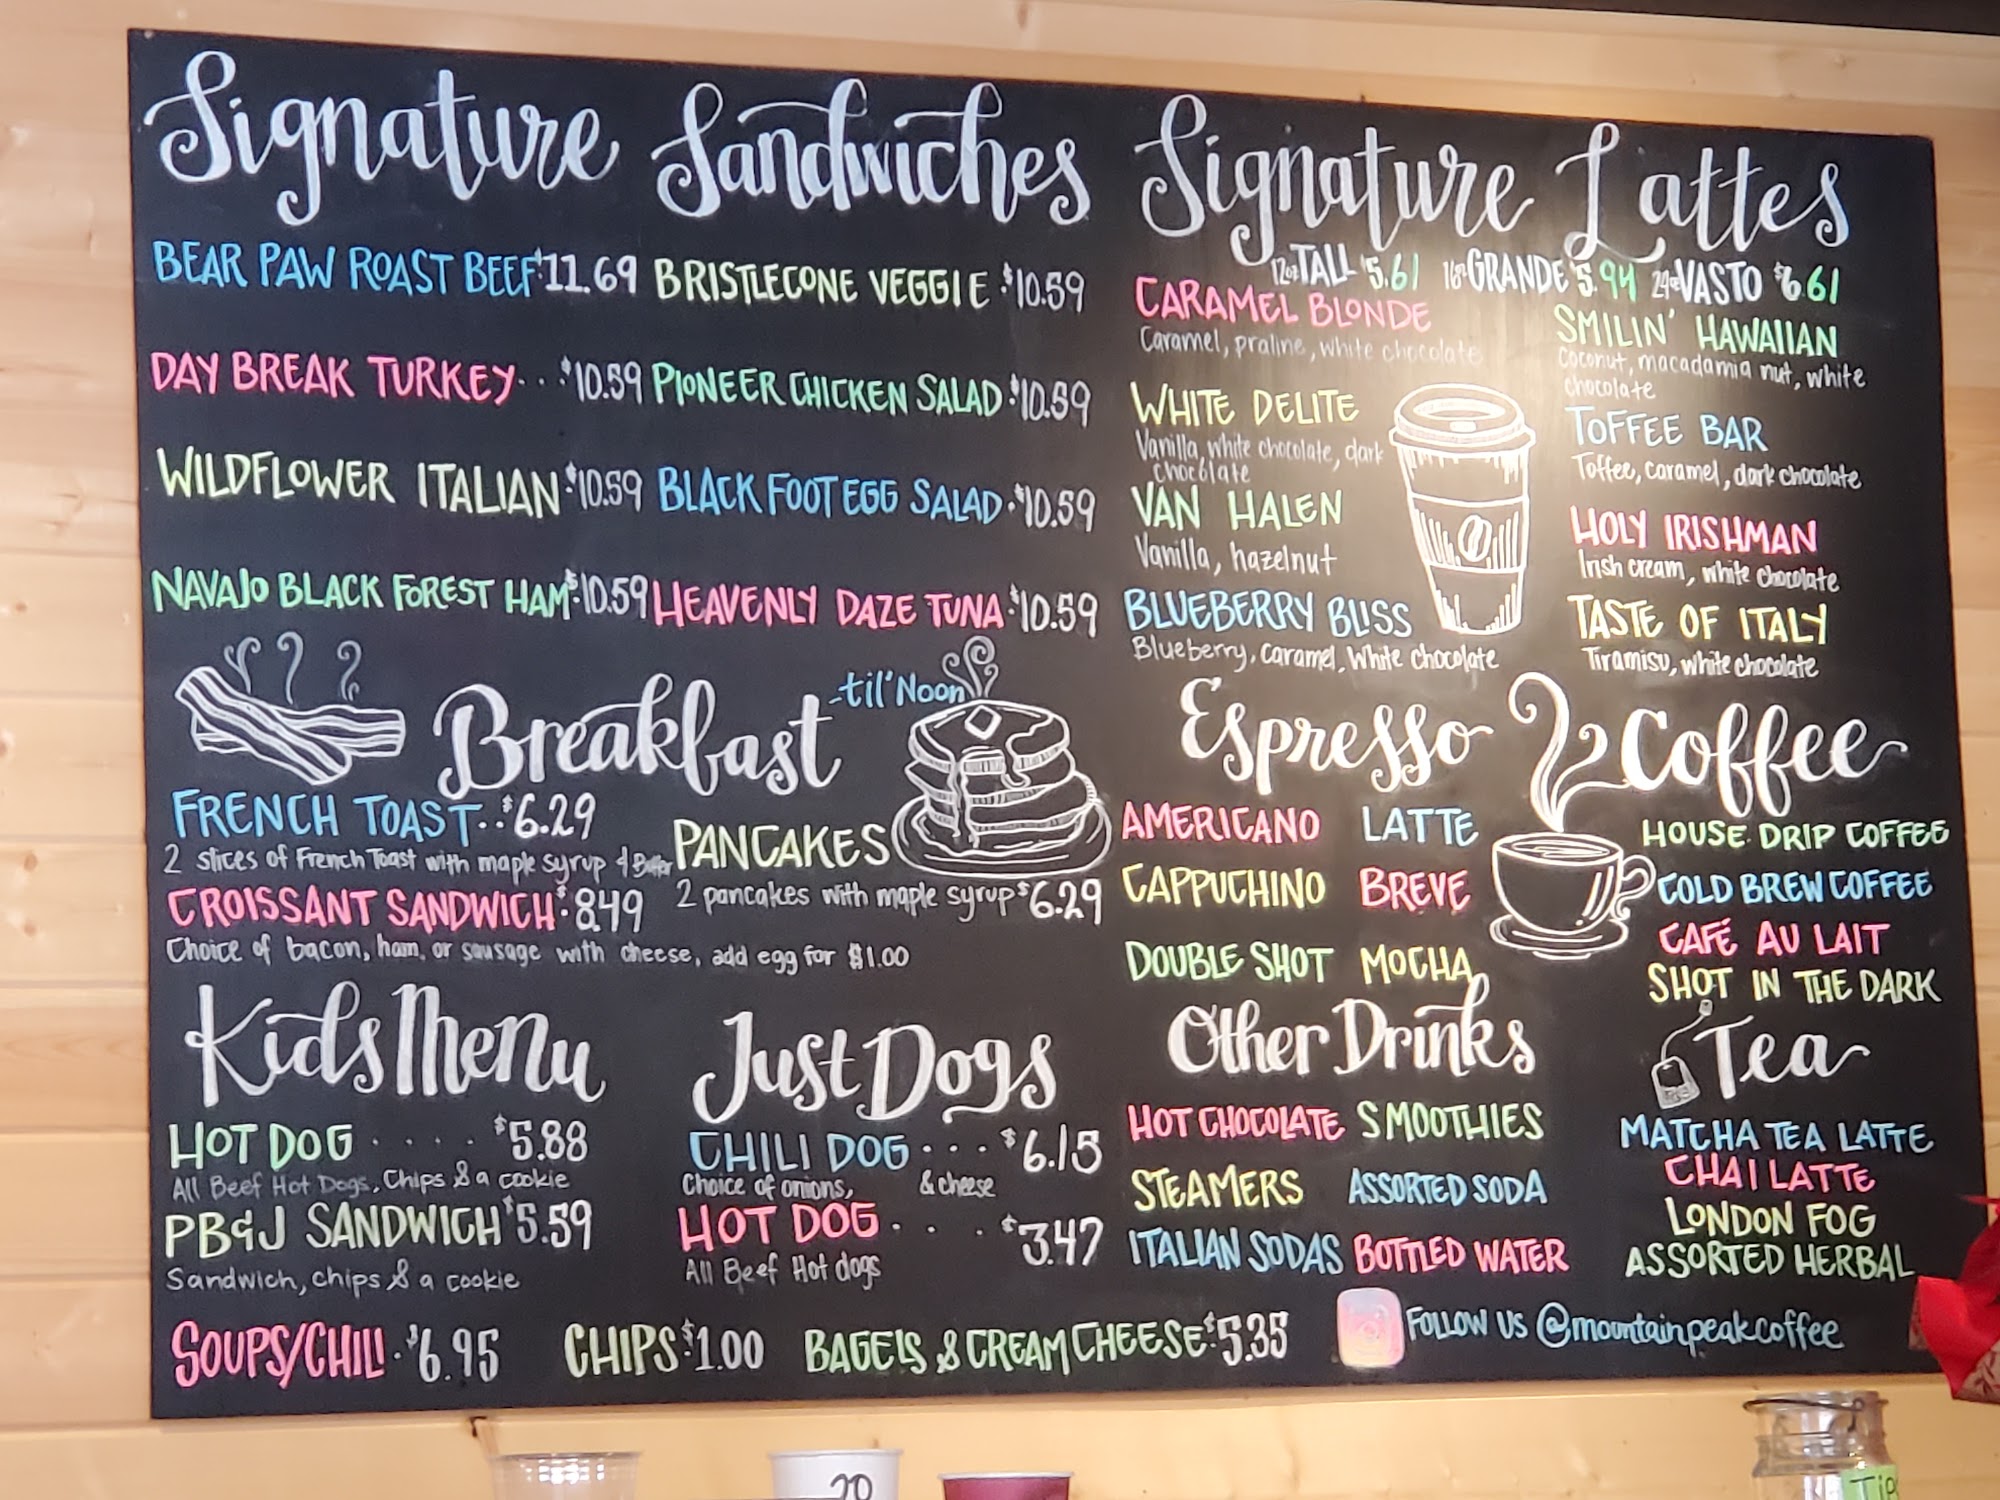 Signature Sandwiches
BEAR PAW ROAST BEEF $11.69
DAY BREAK TURKEY... $10.59
WILDFLOWER ITALIAN. $10.59
NAVAJO BLACK FOREST HAM. $10.59
BRISTLECONE VEGGIE. $10.59
PIONEER CHICKEN SALAD. $10.59
BLACK FOOT EGG SALAD. $10.59
HEAVENLY DAZE TUNA. $10.59
Breakfast -til' Noon
FRENCH TOAST.. $6.29
2 slices of French Toast with maple syrup & Butter
CROISSANT SANDWICH. $8.49
Choice of bacon, ham, or sausage with cheese, add egg for $1.00
PANCAKES
2 pancakes with maple syrup $6.29
Kids Menu
HOT DOG.... $5.88
All Beef Hot Dogs, Chips & a cookie
PB&J SANDWICH $5.59
Sandwich, chips & a cookie
Just Dogs
CHILI DOG... $6.15
Choice of onions, & cheese
HOT DOG... $3.47
All Beef Hot dogs
SOUPS/CHILI. $6.95
CHIPS. $1.00
BAGELS & CREAM CHEESE. $5.35
Signature Lattes
12oz TALL $5.61 16oz GRANDE $5.94 24oz VASTO $6.61
CARAMEL BLONDE
Caramel, praline, white chocolate
WHITE DELITE
Vanilla, white chocolate, dark
chocolate
VAN HALEN
Vanilla, hazelnut
BLUEBERRY BLISS
Blueberry, caramel, White chocolate
SMILIN' HAWAIIAN
Coconut, macadamia nut, white
chocolate
TOFFEE BAR
Toffee, caramel, dark chocolate
HOLY IRISHMAN
Irish cream, white chocolate
TASTE OF ITALY
Tiramisu, white chocolate
Espresso
AMERICANO LATTE
CAPPUCHINO BREVE
DOUBLE SHOT MOCHA
Coffee
HOUSE DRIP COFFEE
COLD BREW COFFEE
CAFÉ AU LAIT
SHOT IN THE DARK
Other Drinks
HOT CHOCOLATE SMOOTHIES
STEAMERS ASSORTED SODA
ITALIAN SODAS BOTTLED WATER
Tea
MATCHA TEA LATTE
CHAI LATTE
LONDON FOG
ASSORTED HERBAL
FOLLOW US @mountainpeakcoffee
20